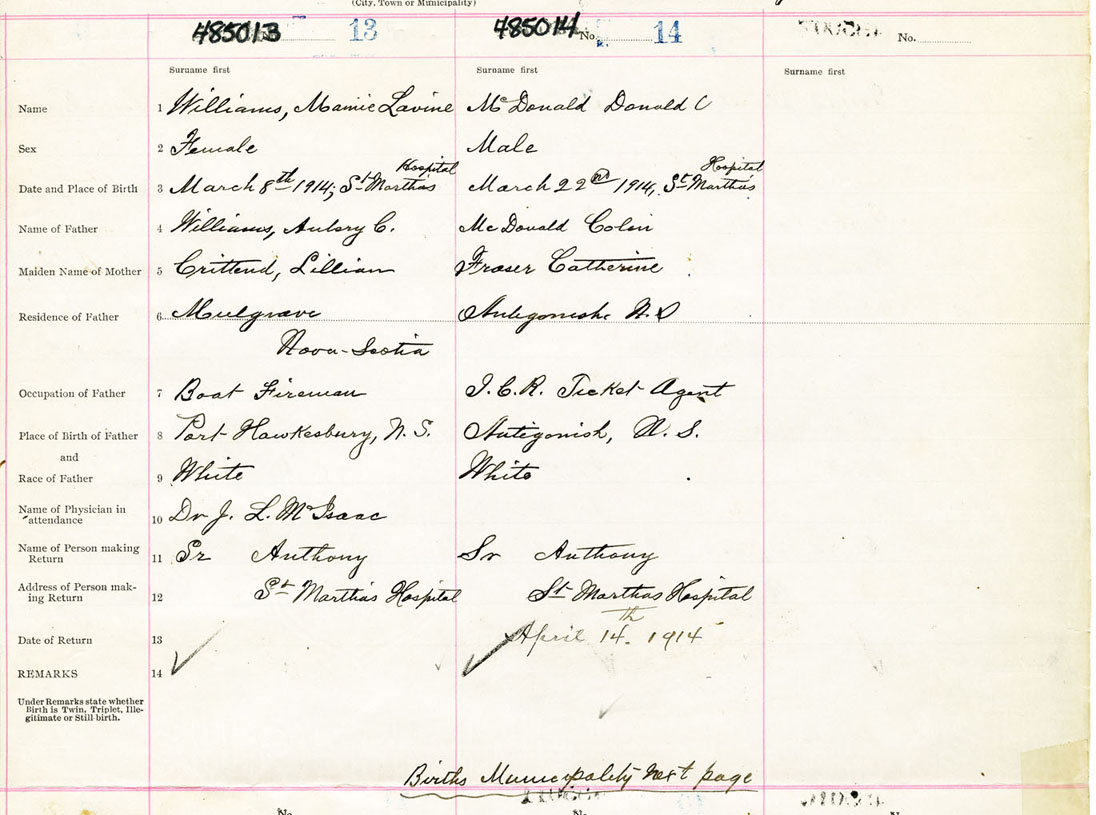 (City, Town or Municipality)
485013 13 485014 No. 14 No.
Surname first Surname first Surname first
Name 1 Williams, Mamie Lavine McDonald Donald C
Sex 2 Female Male
Hospital Hospital
Date and Place of Birth 3 March 8th 1914; St Marthas March 22nd 1914, St Marthas
Name of Father 4 Williams, Aubry C. McDonald Colin
Maiden Name of Mother 5 Crittend, Lillian Fraser Catherine
Residence of Father 6 Mulgrave Antigonish N.S
Nova-Scotia
Occupation of Father 7 Boat Fireman I.C.R. Ticket Agent
Place of Birth of Father 8 Port Hawkesbury, N.S. Antigonish, N.S.
and
Race of Father 9 White White
Name of Physician in
attendance 10 Dr J. L. McIsaac
Name of Person making
Return 11 Sr Anthony Sr Anthony
Address of Person mak-
ing Return 12 St Martha's Hospital St Marthas Hospital
Date of Return 13 April 14th. 1914
REMARKS 14
Under Remarks state whether
Birth is Twin, Triplet, Ille-
gitimate or Still-birth.
Births Municipality next page
No. No.